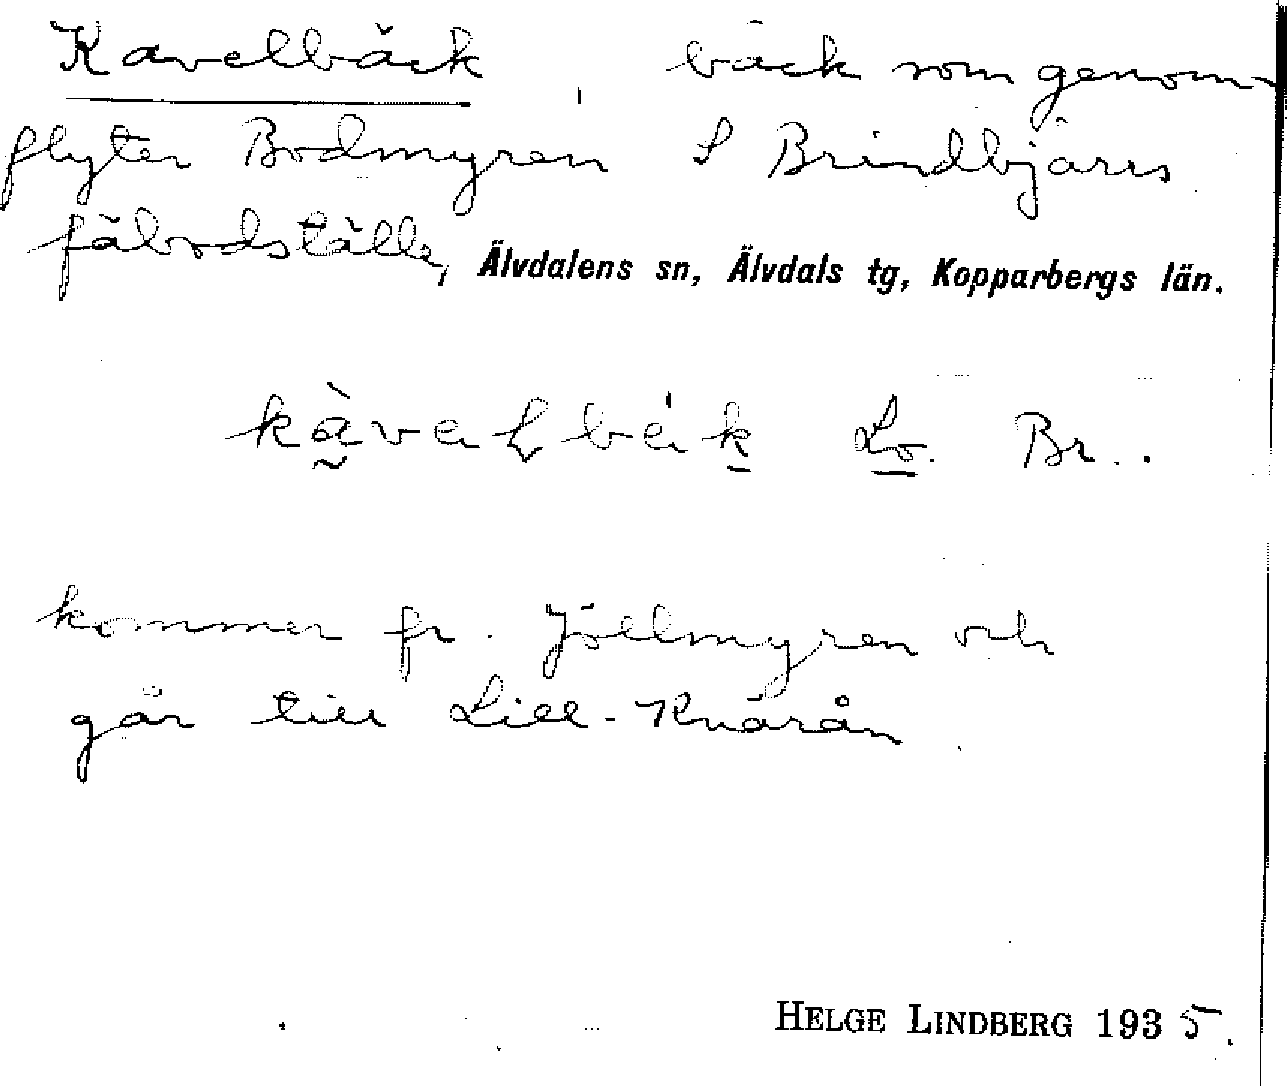 Kavelbäck, bäck som genom-
flyter Bodmyren S Brindbjärs
fäbodställe, Älvdalens sn, Älvdals tg, Kopparbergs län.
Br.
kommer fr. Jöllmyren och
går till Lill-Knärån
HELGE LINDBERG 1935.